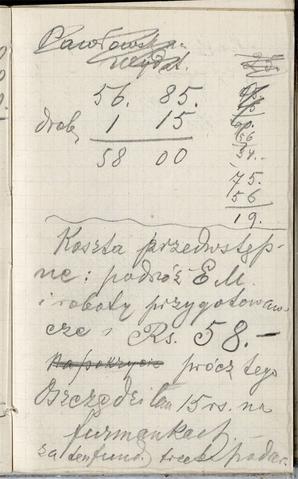 Pawłowska
wydat.
56. 85.
drob. 1 15
58 00
90.
56
34.
75.
56
19.
Koszta przedwstęp-
ne: podróż E. M.
i roboty przygotowaw-
cze Rs. 58.-
Na pokrycie prócz tego
Oszczędziłem 15 rs. na
furmankach
za ten fund. trzeba podać.